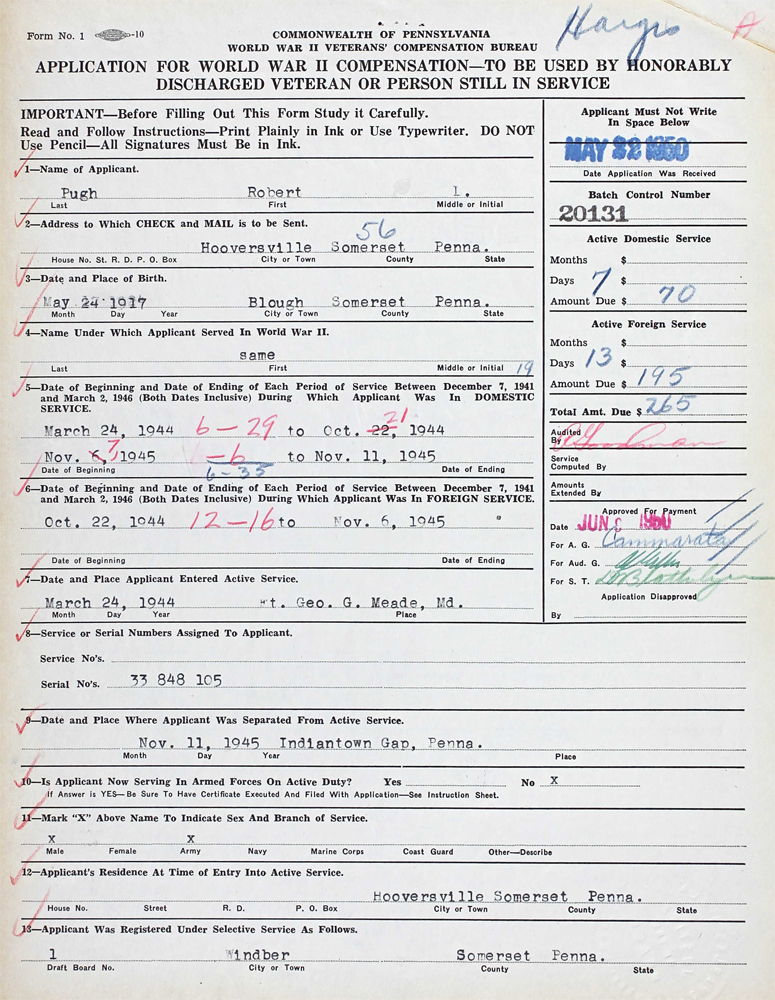 Form No. 1 -10
COMMONWEALTH OF PENNSYLVANIA
WORLD WAR II VETERANS' COMPENSATION BUREAU
Hargis
A
APPLICATION FOR WORLD WAR II COMPENSATION—TO BE USED BY HONORABLY
DISCHARGED VETERAN OR PERSON STILL IN SERVICE
IMPORTANT—Before Filling Out This Form Study it Carefully.
Read and Follow Instructions—Print Plainly in Ink or Use Typewriter. DO NOT
Use Pencil—All Signatures Must Be in Ink.
1—Name of Applicant.
Pugh Robert L.
Last First Middle or Initial
2—Address to Which CHECK and MAIL is to be Sent.
56
Hooversville Somerset Penna.
House No. St. R. D. P. O. Box City or Town County State
3—Date and Place of Birth.
May 24 1917 Blough Somerset Penna.
Month Day Year City or Town County State
4—Name Under Which Applicant Served In World War II.
same
Last First Middle or Initial 19
5—Date of Beginning and Date of Ending of Each Period of Service Between December 7, 1941
and March 2, 1946 (Both Dates Inclusive) During Which Applicant Was In DOMESTIC
SERVICE.
March 24, 1944 6-29 to Oct. 22, 21 1944
Nov. 6, 7 1945 -6 to Nov. 11, 1945
Date of Beginning 6-35 Date of Ending
6—Date of Beginning and Date of Ending of Each Period of Service Between December 7, 1941
and March 2, 1946 (Both Dates Inclusive) During Which Applicant Was In FOREIGN SERVICE.
Oct. 22, 1044 12-16 to Nov. 6, 1945
Date of Beginning Date of Ending
7—Date and Place Applicant Entered Active Service.
March 24, 1944 Ft. Geo. G. Meade, Md.
Month Day Year Place
8—Service or Serial Numbers Assigned To Applicant.
Service No's.
Serial No's. 33 848 105
9—Date and Place Where Applicant Was Separated From Active Service.
Nov. 11, 1945 Indiantown Gap, Penna.
Month Day Year Place
10—Is Applicant Now Serving In Armed Forces On Active Duty? Yes No X
If Answer is YES—Be Sure To Have Certificate Executed And Filed With Application—See Instruction Sheet.
11—Mark "X" Above Name To Indicate Sex And Branch of Service.
X X
Male Female Army Navy Marine Corps Coast Guard Other—Describe
12—Applicant's Residence At Time of Entry Into Active Service.
Hooversville Somerset Penna.
House No. Street R. D. P. O. Box City or Town County State
13—Applicant Was Registered Under Selective Service As Follows.
1 Windber Somerset Penna.
Draft Board No. City or Town County State
Applicant Must Not Write
In Space Below
MAY 22 1950
Date Application Was Received
Batch Control Number
20131
Active Domestic Service
Months $
Days 7 $
Amount Due $ 70
Active Foreign Service
Months $
Days 13 $
Amount Due $ 195
Total Amt. Due $ 265
Audited
By
Service
Computed By
Amounts
Extended By
Approved For Payment
Date JUN 1950
For A. G. Cammarata
For Aud. G.
For S. T.
Application Disapproved
By